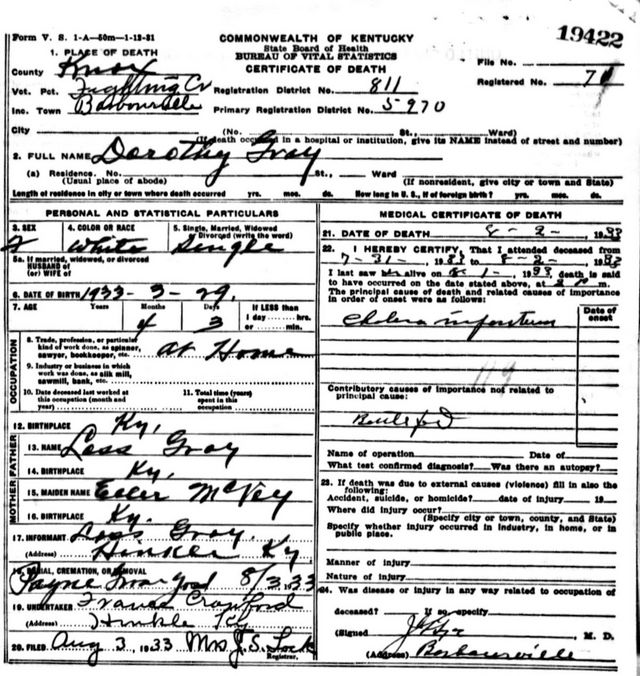 Form V. S. 1-A—50m—1-12-31
COMMONWEALTH OF KENTUCKY
State Board of Health
BUREAU OF VITAL STATISTICS
CERTIFICATE OF DEATH
19422
File No.
Registered No. 71
1. PLACE OF DEATH
County Knox
Vot. Pct. Fighting Cr Registration District No. 811
Inc. Town Barbourville Primary Registration District No. 5970
City (No. St., Ward)
(If death occurred in a hospital or institution, give its NAME instead of street and number)
2. FULL NAME Dorothy Gray
(a) Residence. No. St., Ward
(Usual place of abode) (If nonresident, give city or town and State)
Length of residence in city or town where death occurred yrs. mos. ds. How long in U. S., if of foreign birth? yrs. mos. ds.
PERSONAL AND STATISTICAL PARTICULARS
3. SEX 4. COLOR OR RACE 5. Single, Married, Widowed
or Divorced (write the word)
F White Single
5a. If married, widowed, or divorced
HUSBAND of
(or) WIFE of
6. DATE OF BIRTH 1933-3-29.
7. AGE Years Months Days If LESS than
1 day hrs.
or min.
4 3
OCCUPATION
8. Trade, profession, or particular
kind of work done, as spinner,
sawyer, bookkeeper, etc. at Home
9. Industry or business in which
work was done, as silk mill,
sawmill, bank, etc.
10. Date deceased last worked at
this occupation (month and
year)
11. Total time (years)
spent in this
occupation
12. BIRTHPLACE Ky,
FATHER
13. NAME Gray
14. BIRTHPLACE Ky.
MOTHER
15. MAIDEN NAME McVey
16. BIRTHPLACE Ky.
17. INFORMANT Gray.
(Address) Hinkle Ky.
18. BURIAL, CREMATION, OR REMOVAL
Payne 8/3.33
19. UNDERTAKER
(Address) Hinkle Ky
20. FILED Aug 3, 1933 Mrs J. S.
Registrar.
MEDICAL CERTIFICATE OF DEATH
21. DATE OF DEATH 8-2-, 1933
22. I HEREBY CERTIFY, That I attended deceased from
7-31-, 1933 8-2-, 1933
I last saw alive on 8-1-, 1933, death is said
to have occurred on the date stated above, at m.
The principal cause of death and related causes of importance
in order of onset were as follows:
Date of
onset
Cholera infantum
119
Contributory causes of importance not related to
principal cause:
Name of operation Date of
What test confirmed diagnosis? Was there an autopsy?
23. If death was due to external causes (violence) fill in also the
following:
Accident, suicide, or homicide? date of injury 19
Where did injury occur?
(Specify city or town, county, and State)
Specify whether injury occurred in industry, in home, or in
public place.
Manner of injury
Nature of injury
24. Was disease or injury in any way related to occupation of
deceased? If so, specify
(Signed) M. D.
(Address) Barbourville